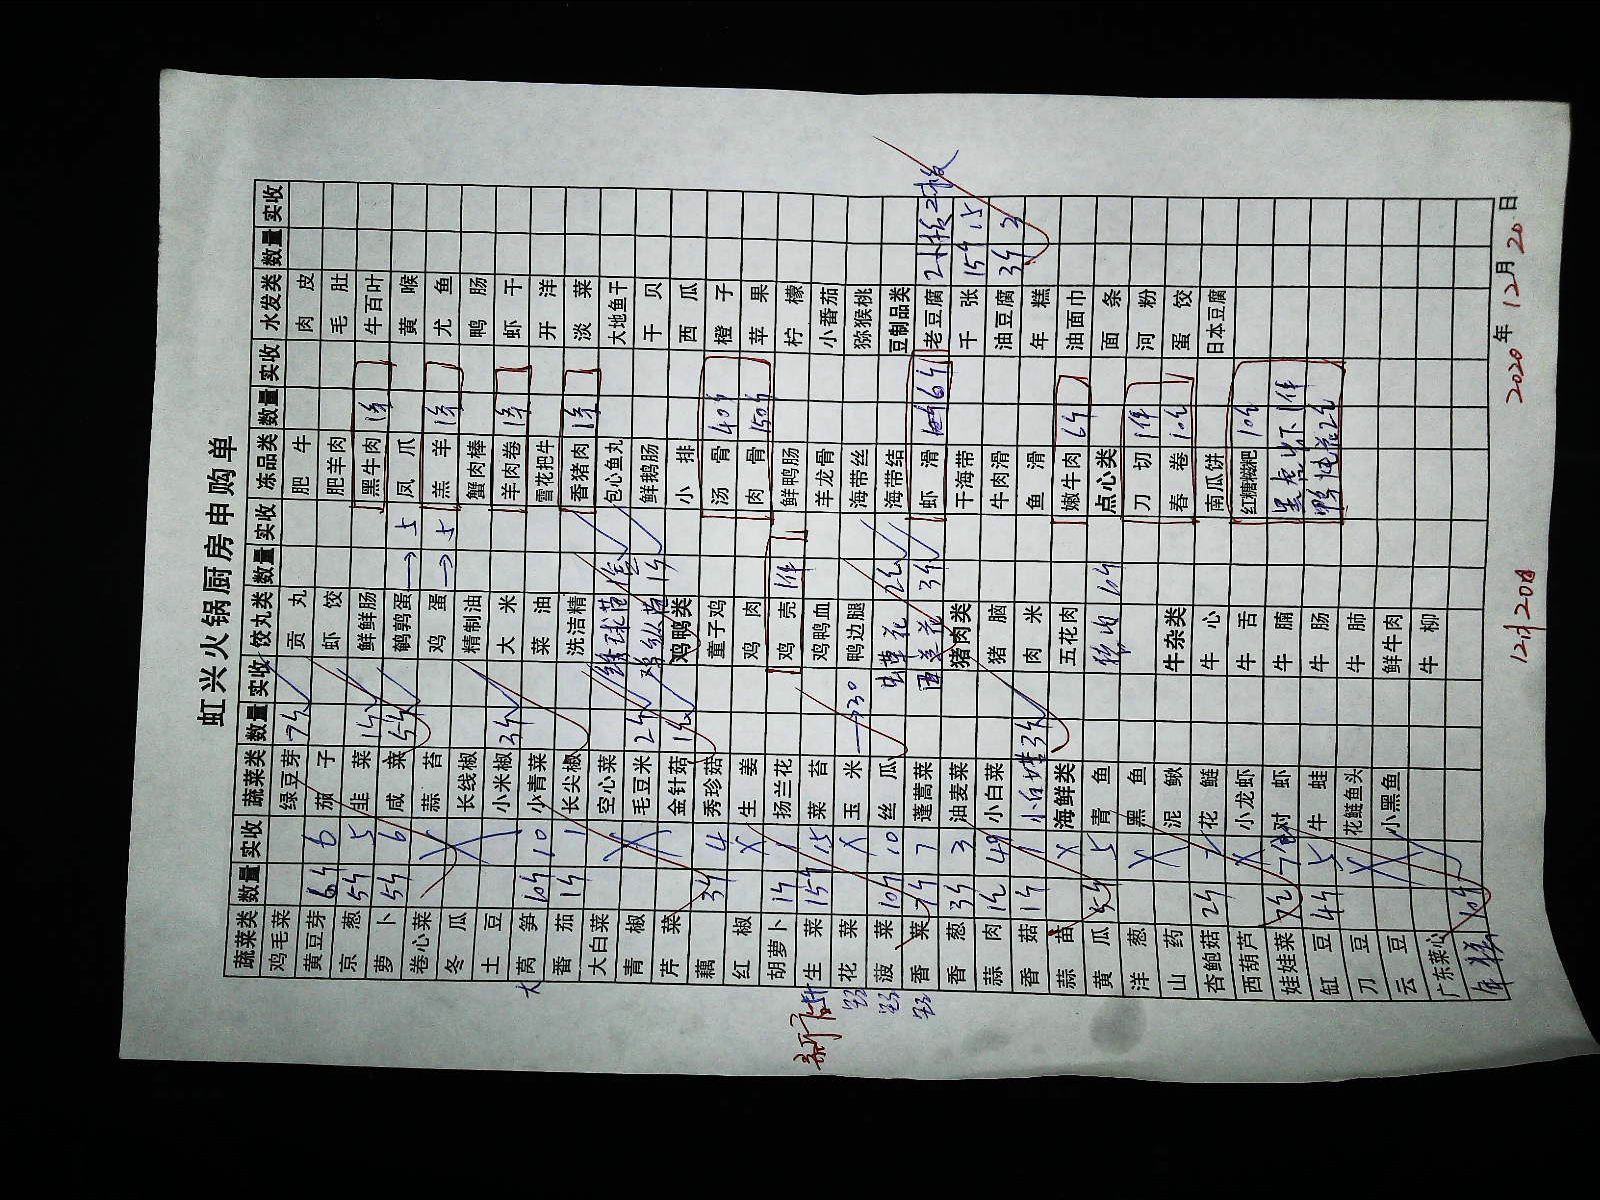 虹兴火锅厨房申购单
蔬菜类 数量 实收 蔬菜类 数量 实收 饺丸类 数量 实收 冻品类 数量 实收 水发类 数量 实收
鸡毛菜 绿豆芽 7斤 贡丸 肥牛 肉皮
黄豆芽 6斤 6 茄子 虾饺 肥羊肉 毛肚
京葱 5斤 5 韭菜 1斤 鲜鲜肠 黑牛肉 牛百叶
萝卜 5斤 6 咸菜 5斤 鹌鹑蛋 → 上 凤爪 黄喉
卷心菜 蒜苔 鸡蛋 → 上 羔羊 尤鱼
冬瓜 X 长线椒 精制油 蟹肉棒 鸭肠
土豆 小米椒 3斤 大米 羊肉卷 虾干
大 莴笋 10斤 10 小青菜 菜油 雪花把牛 开洋
番茄 1斤 1 长尖椒 洗洁精 香猪肉 淡菜
大白菜 空心菜 绣球菇 包心鱼丸 大地鱼干
青椒 X 毛豆米 2斤 鸡纵菇 1斤 鲜鹅肠 干贝
芹菜 金针菇 鸡鸭类 小排 西瓜
藕 3斤 4 秀珍菇 童子鸡 汤骨 40斤 橙子
红椒 X 生姜 鸡肉 肉骨 150斤 苹果
胡萝卜 1斤 1 扬兰花 鸡壳 1件 鲜鸭肠 柠檬
生菜 15斤 15 菜苔 鸡鸭血 羊龙骨 小番茄
花菜 X 玉米 →30 鸭边腿 海带丝 猕猴桃
菠菜 10斤 10 丝瓜 虫草花 海带结 豆制品类
香菜 7斤 7 蓬蒿菜 西兰花 3斤 虾滑 6斤 老豆腐 2板 二板
香葱 3斤 3 油麦菜 猪肉类 干海带 千张 15斤 15
蒜肉 小白菜 猪脑 牛肉滑 油豆腐 3斤 3
香菇 1斤 1 3斤 肉米 鱼滑 年糕
蒜苗 X 海鲜类 五花肉 嫩牛肉 6斤 油面巾
黄瓜 5斤 5 青鱼 猪肉 10斤 点心类 面条
洋葱 X 黑鱼 刀切 1件 河粉
山药 泥鳅 牛杂类 春卷 10包 蛋饺
杏鲍菇 2斤 2 花鲢 牛心 南瓜饼 日本豆腐
西葫芦 X 小龙虾 牛舌 红糖糍粑 10包
娃娃菜 7包 7 对虾 牛腩 1件
缸豆 4斤 5 牛蛙 牛肠
刀豆 X 花鲢鱼头 牛肺
云豆 小黑鱼 鲜牛肉
广东菜心 牛柳
年糕 10斤
2020年12月20日
12月20日